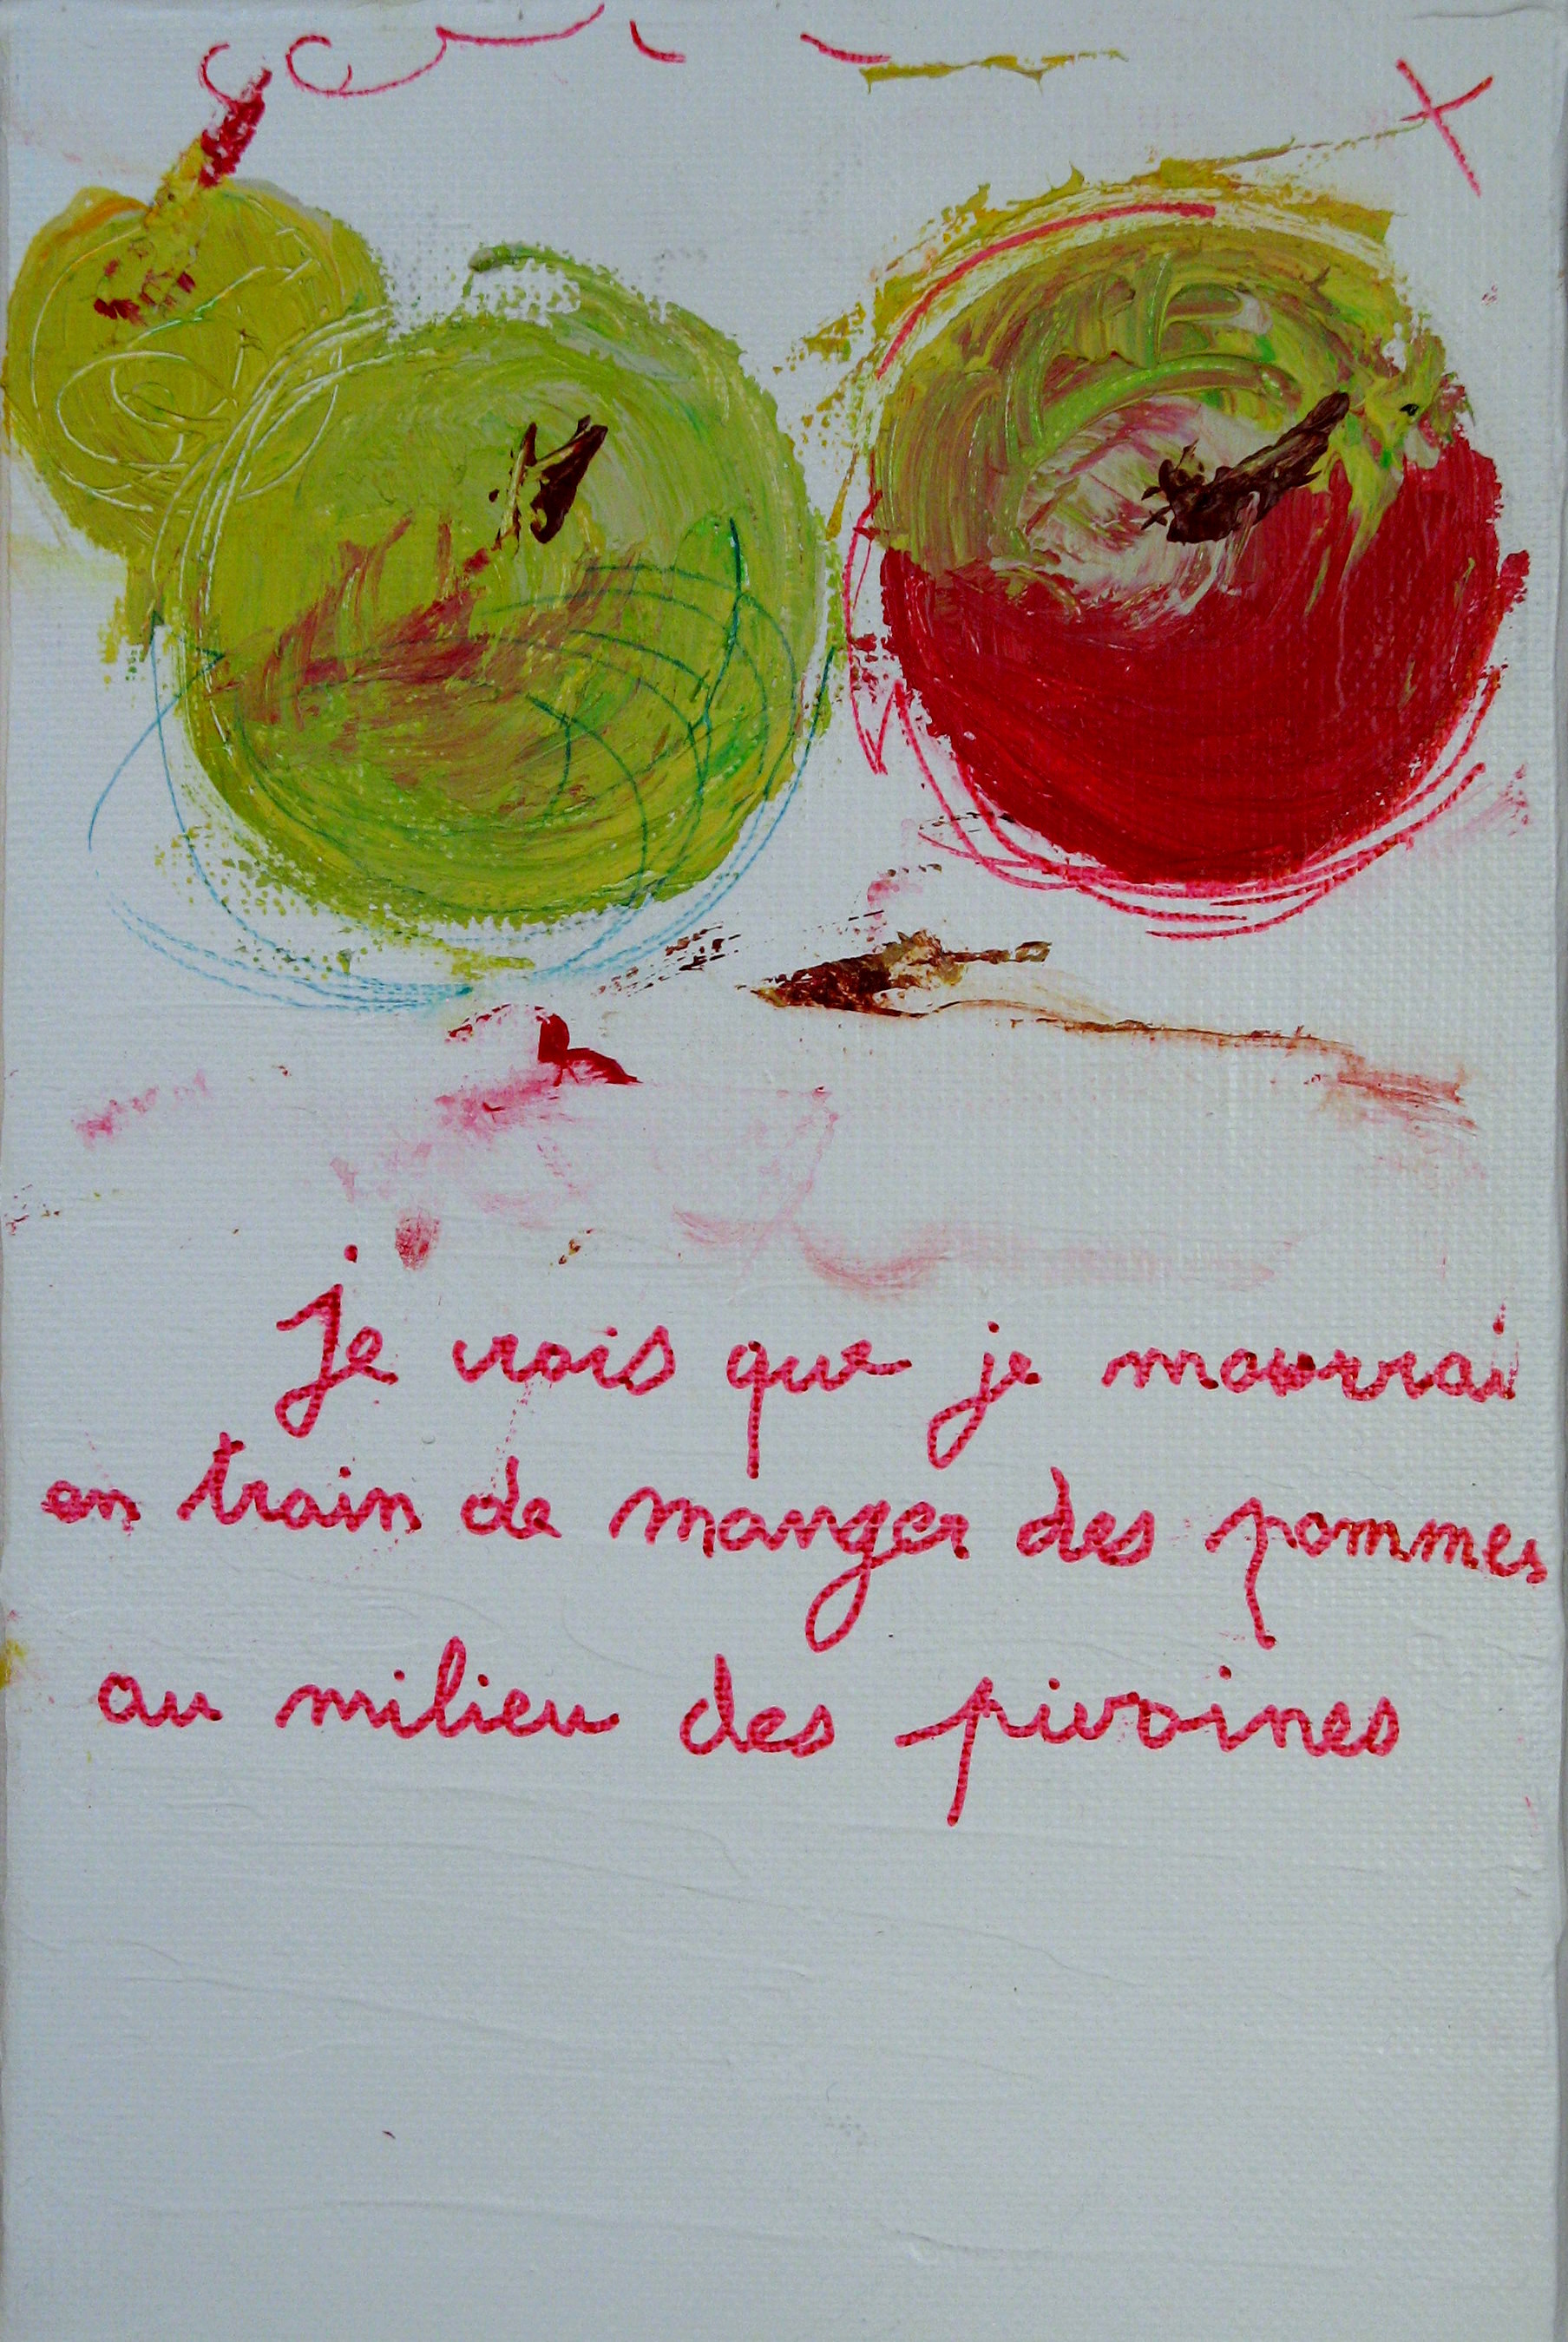 Je crois que je mourrai
en train de manger des pommes
au milieu des pivoines